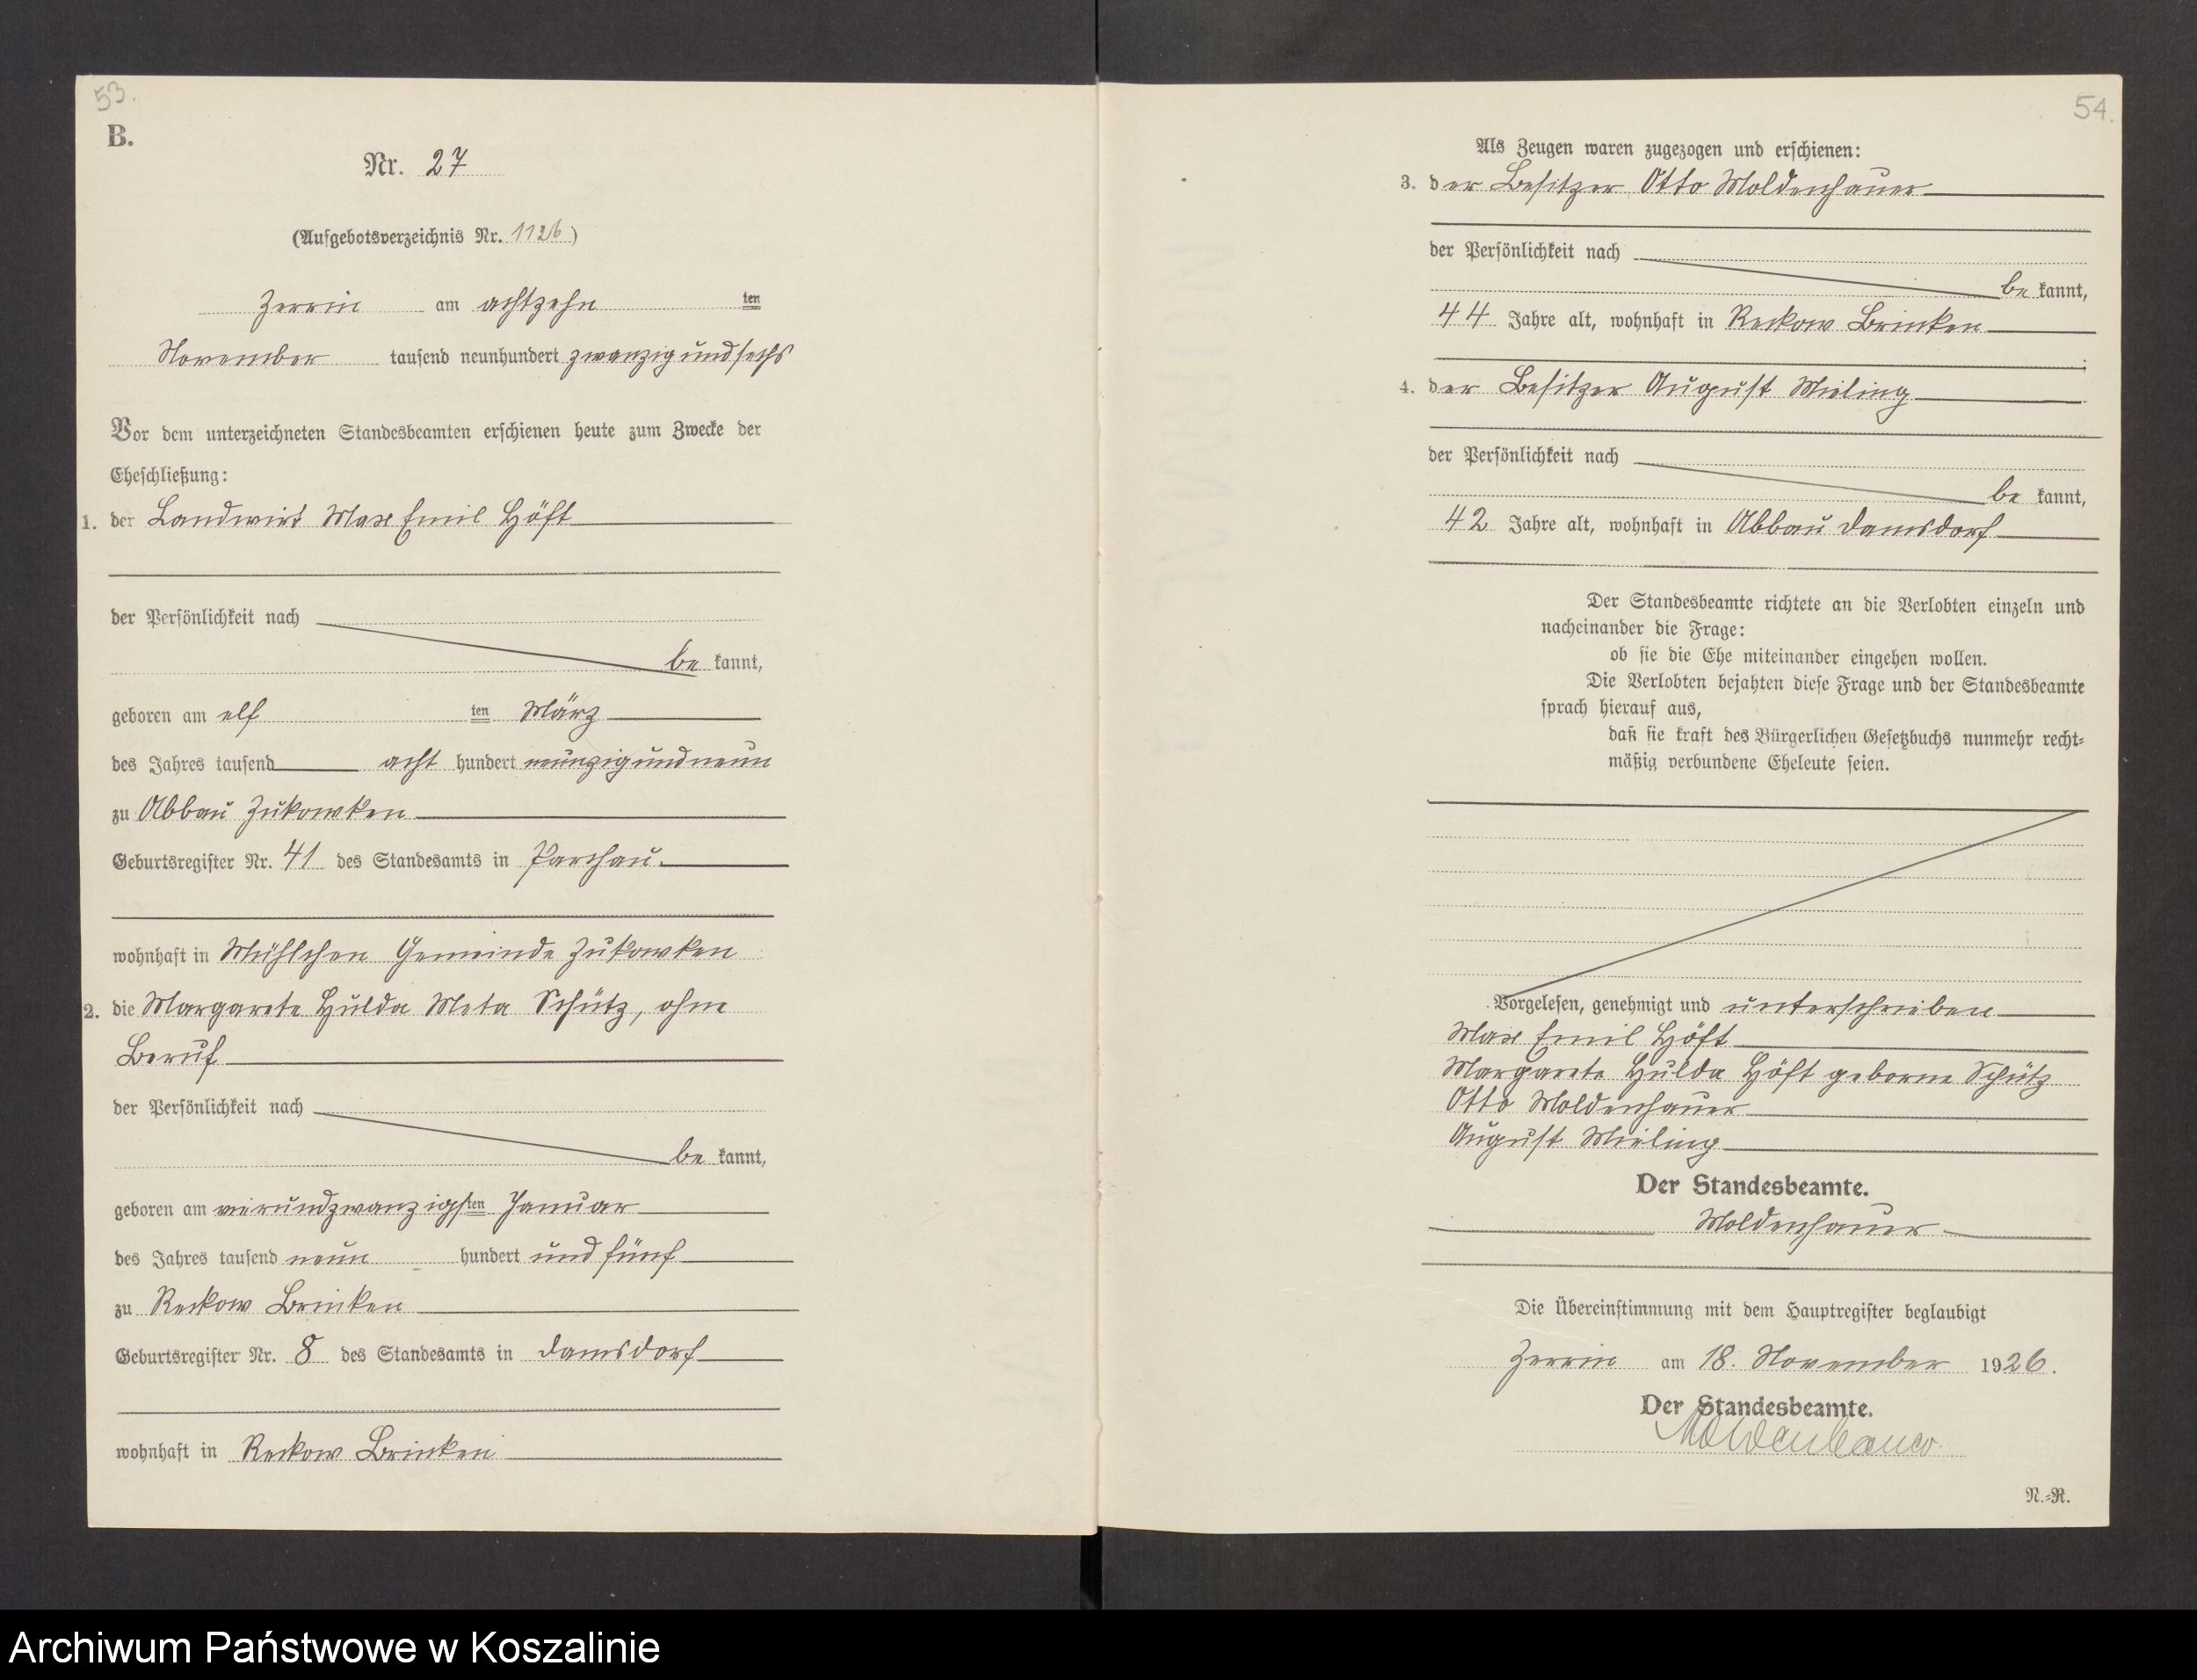 53.
B.
Nr. 27
(Aufgebotsverzeichnis Nr. 1126)
Zerrin am achtzehn ten
November tausend neunhundert zwanzig und sechs
Vor dem unterzeichneten Standesbeamten erschienen heute zum Zwecke der
Eheschließung:
1. der Landwirt Max Emil Höft
der Persönlichkeit nach
be kannt,
geboren am elf ten März
des Jahres tausend acht hundert neunzig und neun
zu Abbau Zukowken
Geburtsregister Nr. 41 des Standesamts in Parchau.
wohnhaft in Mühlchen Gemeinde Zukowken
2. die Margarete Hulda Meta Schütz, ohne
Beruf
der Persönlichkeit nach
be kannt,
geboren am vierundzwanzigsten Januar
des Jahres tausend neun hundert und fünf
zu Reckow Brinken
Geburtsregister Nr. 8 des Standesamts in Damsdorf
wohnhaft in Reckow Brinken
54.
Als Zeugen waren zugezogen und erschienen:
3. der Besitzer Otto Moldenhauer
der Persönlichkeit nach
be kannt,
44 Jahre alt, wohnhaft in Reckow Brinken
4. der Besitzer August Mieling
der Persönlichkeit nach
be kannt,
42 Jahre alt, wohnhaft in Abbau Damsdorf
Der Standesbeamte richtete an die Verlobten einzeln und
nacheinander die Frage:
ob sie die Ehe miteinander eingehen wollen.
Die Verlobten bejahten diese Frage und der Standesbeamte
sprach hierauf aus,
daß sie kraft des Bürgerlichen Gesetzbuchs nunmehr recht-
mäßig verbundene Eheleute seien.
Vorgelesen, genehmigt und unterschrieben
Max Emil Höft
Margarete Hulda Höft geborne Schütz
Otto Moldenhauer
August Mieling
Der Standesbeamte.
Moldenhauer
Die Übereinstimmung mit dem Hauptregister beglaubigt
Zerrin am 18. November 1926.
Der Standesbeamte.
Moldenhauer.
N.-R.
Archiwum Państwowe w Koszalinie